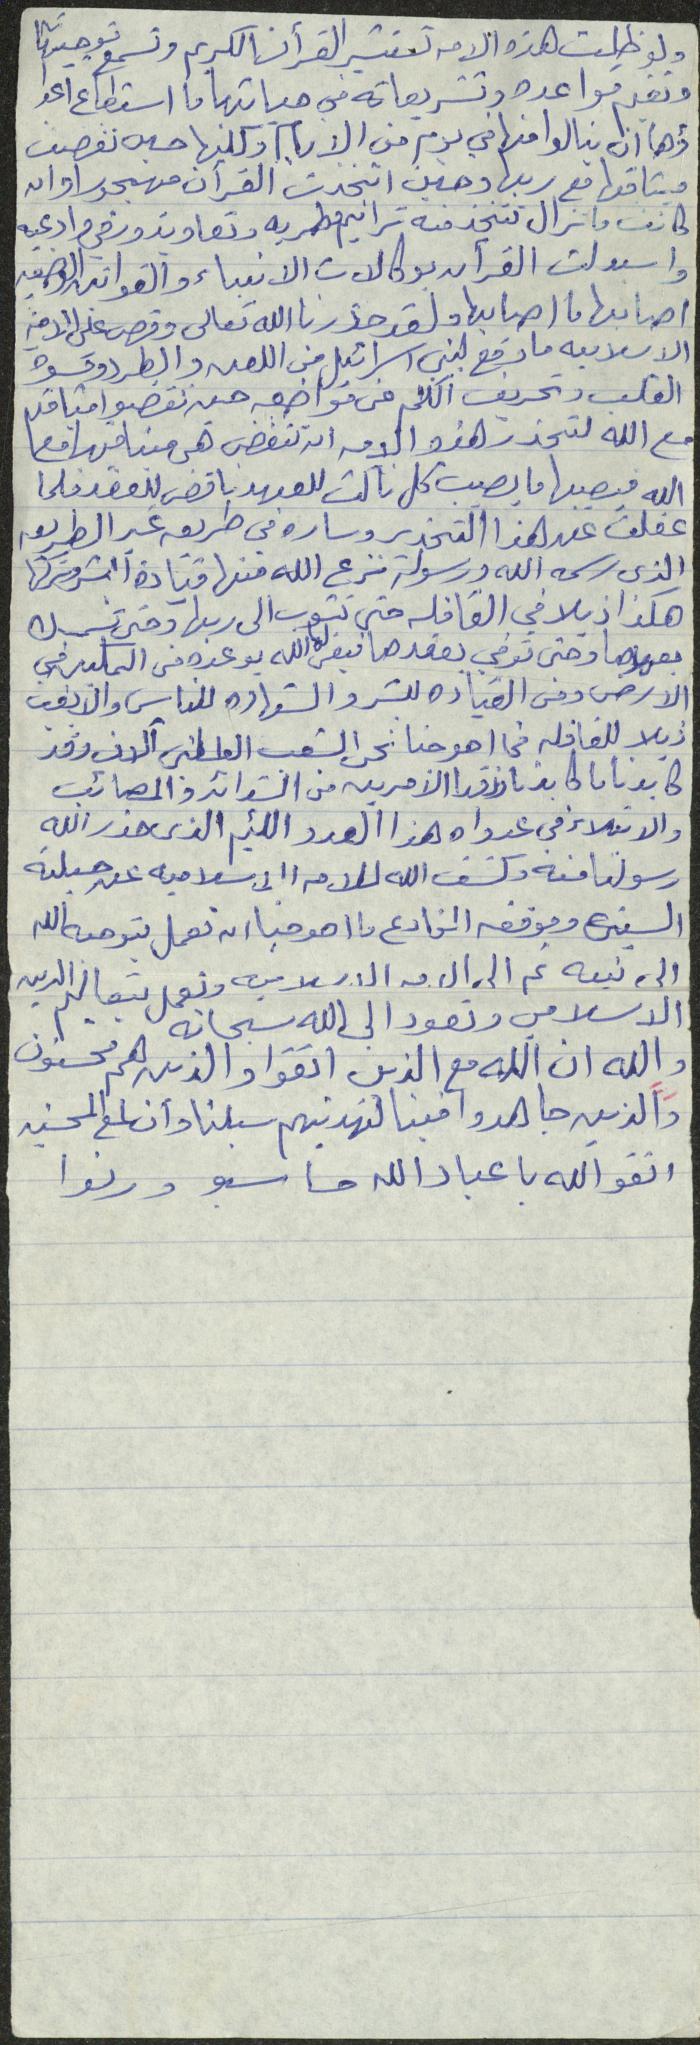 ولو ظلت هذه الامه تستشير القرأن الكريم وتسمع توجيهاته
وتقيم قواعده وتشريعاته في حياتها ما استطاع اعدا
ؤها ان ينالوا منها في يوم من الايام ولكنها حين نقضت
ميثاقها مع ربها وحين اتخذت القرأن مهجورا وان
كانت ما تزال تتخذ منه ترانيم مطربه وتعاويذ ورقي وادعيه
واستبدلت القرأن بوكالات الانباء والقوانين الوضعيه
اصابها ما اصابها ولقد حذرنا الله تعالى وقص على الامه
الاسلاميه ما وقع لبني اسرائيل من اللعن والطرد وقسوة
القلب وتحريف الكلم عن مواضعه حين نقضوا ميثاقهم
مع الله لتحذر هذه الامه ان تنقض هي ميثاقها مع
الله فيصيبها ما يصيب كل ناكث للعهد ناقض للعقد فلما
غفلت عن هذا التحذير وساره في طريق غير الطريق
الذي رسمه الله ورسوله نزع الله منها قيادة البشر وتركها
هكذا ذيلا في القافله حتى تتوب الى ربها وحتى تتمسك
بعهدها وحتى توفي بعقدها فيفي لها الله بوعده من التمكين في
الارض ومن القياده للبشر والشهاده للناس والا بقيت
ذيلا للقافله فما احوجنا نحن الشعب الفلسطيني الان وقد
كابدنا ما كابدنا وذقنا الامرين من الشدائد والمصائب
والابتلاء في عدوان هذا العدو اللئيم الذي حذر الله
رسولنا منه وكشف الله للامه الاسلاميه عن جبلته
وموقفه المخادع ما احوجنا ان نعمل بتوجيه الله
الى نبيه ثم الى الامه الاسلاميه ونعمل بتعاليم الدين
الاسلامي ونعود الى الله سبحانه
والله ان الله مع الذين اتقوا والذين هم محسنون
والذين جاهدوا فينا لنهدينهم سبلنا وأن الله لمع المحسنين
اتقو الله يا عباد الله حاسبو وزنوا